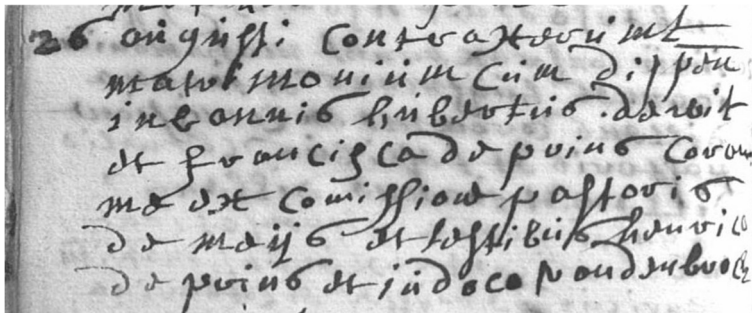 26 augusti contraxerunt
matrimonium cum dispen
in bannis hubertus de wit
et francisca de prins coram
me ex comissione pastoris
de meijs et testibus henrico
de prins et judoco vandenbroeck